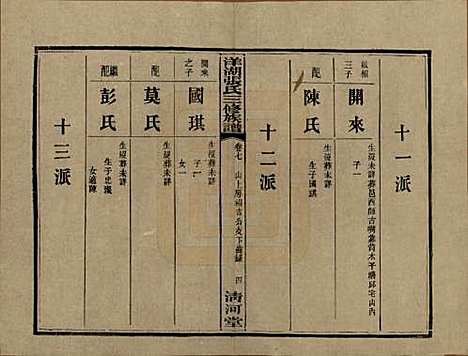 十一派
啟楅
三子
開來
生歿未詳葬邑西師古嘴靠背木平塘邱宅山內
子一
配
陳氏
生歿葬未詳
生子國琪
十二派
洋湖張氏三修族譜
卷七
山上房福吉公支下齒錄
四
清河堂
開來
之子
國琪
生歿葬未詳
子一
女一
配
莫氏
生歿葬未詳
繼配
彭氏
生歿葬未詳
生子忠
女適陳
十三派